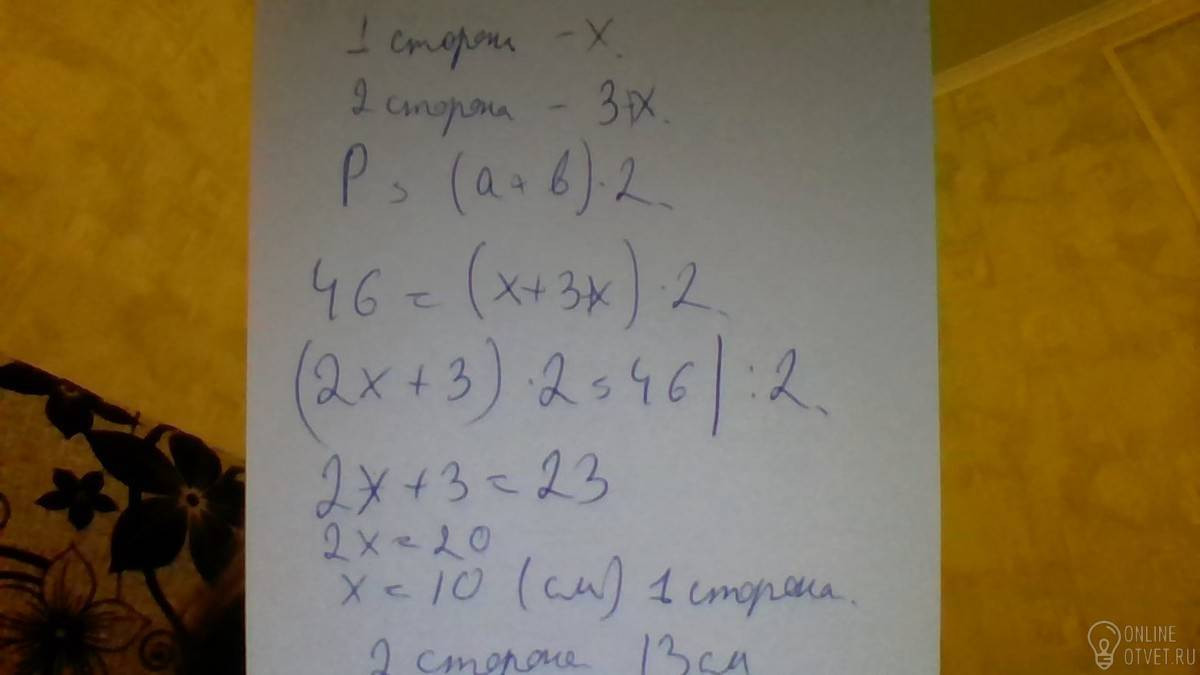 1 сторона - х.
2 сторона - 3+х.
P = (а + в) · 2.
46 = (х+3+х) · 2.
(2х + 3) · 2 = 46 | : 2.
2х + 3 = 23
2х = 20
х = 10 (см) 1 сторона.
2 сторона 13 см
ONLINE
OTVET.RU